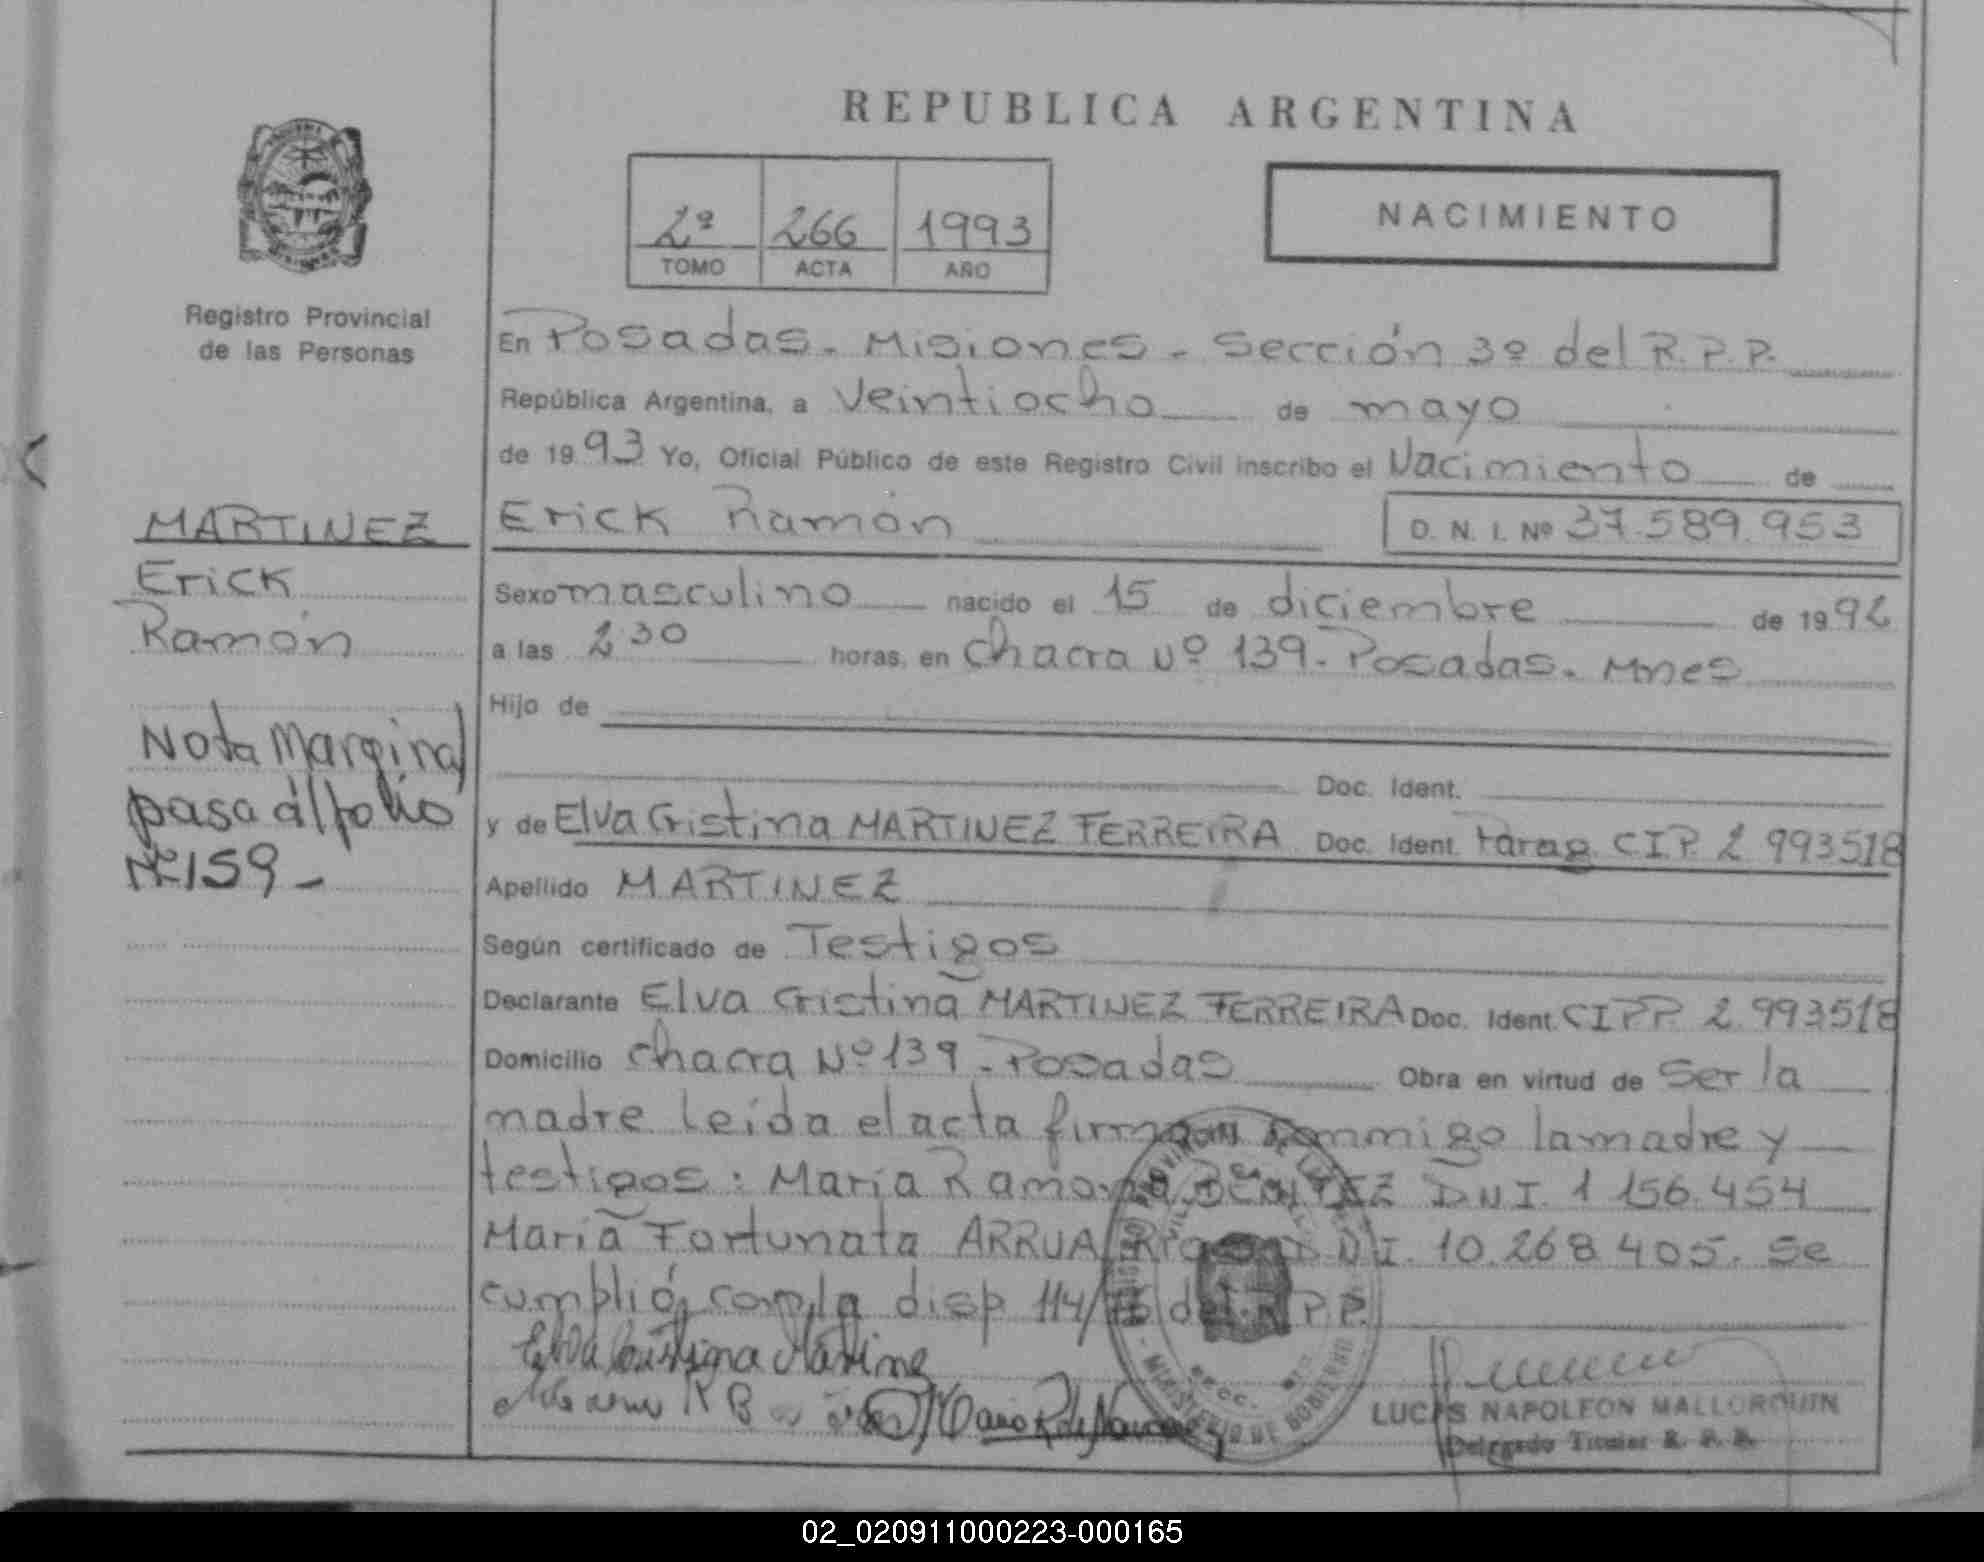 REPUBLICA ARGENTINA
2º 266 1993
TOMO ACTA AÑO
NACIMIENTO
Registro Provincial
de las Personas
MARTINEZ
Erick
Ramón
Nota Marginal
pasa al folio
Nº 159 -
En Posadas - Misiones - Sección 3º del R.P.P.
República Argentina, a Veintiocho de mayo
de 19 93 Yo, Oficial Público de este Registro Civil inscribo el Nacimiento de
Erick Ramón D. N. I. Nº 37.589.953
Sexo masculino nacido el 15 de diciembre de 19 92
a las 2 30 horas, en Chacra Nº 139 - Posadas - Mnes
Hijo de
Doc. Ident.
y de Elva Cristina MARTINEZ FERREIRA Doc. Ident. Parag. CIP. 2 993518
Apellido MARTINEZ
Según certificado de Testigos
Declarante Elva Cristina MARTINEZ FERREIRA Doc. Ident. CIPP. 2.993518
Domicilio Chacra Nº 139 - Posadas Obra en virtud de Ser la
madre Leída el acta firman conmigo la madre y
testigos: María Ramona BENITEZ DNI. 1 156.454
María Fortunata ARRUA DNI. 10.268.405. Se
cumplió con la disp 114/ del R.P.P.
Elva Cristina Martinez
LUCAS NAPOLEON MALLORQUIN
Delegado Titular R. P. P.
MINISTERIO DE GOBIERNO
02_020911000223-000165